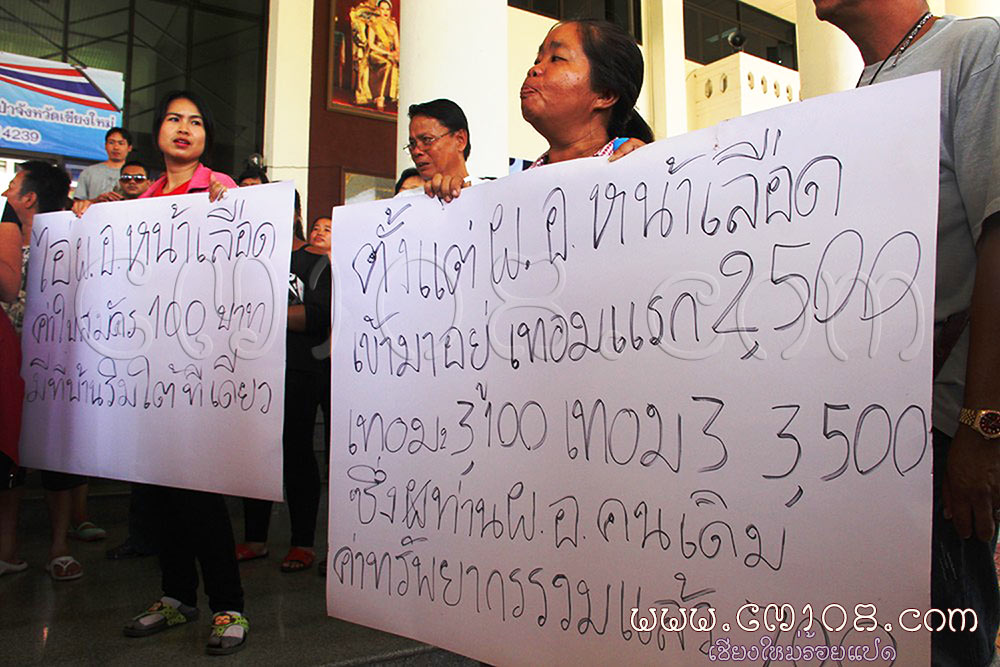 ป่าจังหวัดเชียงใหม่
14239
ไอ ผ.อ. หน้าเลือด
ค่าใบสมัคร 100 บาท
มีที่บ้านริมใต้ที่เดียว
ตั้งแต่ ผ.อ. หน้าเลือด
เข้ามาอยู่ เทอมแรก 2,500
เทอม 2 3,100 เทอม 3 3,500
ซึ่งผิดท่าน ผ.อ. คนเดิม
ค่าทรัพยากรรวมแล้ว
www.ชม108.com
เชียงใหม่ร้อยแปด